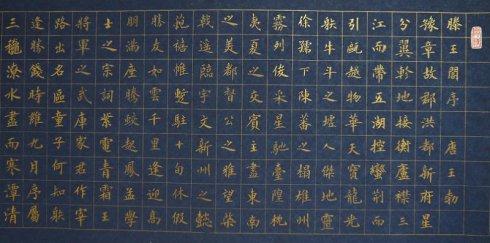 滕王閣序 唐王勃
豫章故郡洪都新府星
分翼軫地接衡廬襟三
江而帶五湖控蠻荆而
引甌越物華天寶龍光
射牛斗之墟人傑地靈
徐孺下陳蕃之榻雄州
霧列俊采星馳臺隍枕
夷夏之交賓主盡東南
之美都督公之雅望棨
戟遙臨宇文新州之懿
範襜帷暫駐十旬休假
勝友如雲千里逢迎高
朋滿座騰蛟起鳳孟學
士之詞宗紫電青霜王
將軍之武庫家君作宰
路出名區童子何知躬
逢勝餞時維九月序屬
三穐潦水盡而寒潭清